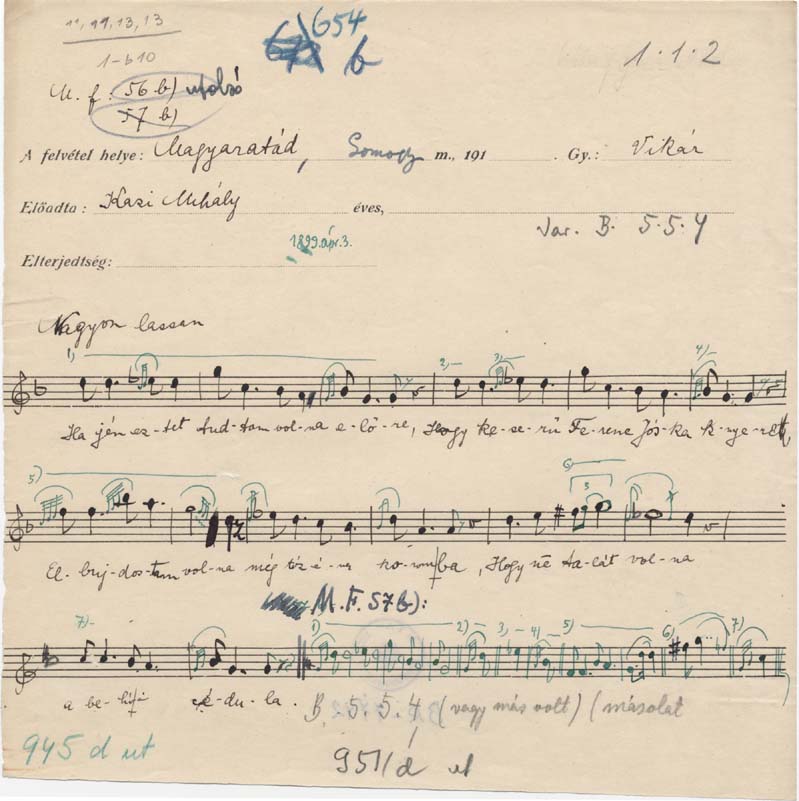 11, 11, 13, 13
1-b10
654
b
1·1·2
M. f. 56 b) utolsó
57 b)
A felvétel helye: Magyaratád, Somogy m., 191 . Gy.: Vikár
Előadta: Kazi Mihály éves,
Var. B. 5·5·4
1899.ápr.3.
Elterjedtség:
Nagyon lassan
1) 2) 3) 4)
Ha jén ez-tet tud-tam vol-na e-lő-re, Hogy ke-se-rű Fe-renc Jós-ka k-nye-re,
5) 6) 3
El-buj-dos-tam vol-na még tíz-é-ves ko-romba, Hogy ne ta-lált vol-na
M.F. 57b):
7) 1) 2) 3) 4) 5) 6) 7)
a be-hívó cé-du-la.
B. 5. 5. 4, (vagy más volt) (másolat
945 d ut
951/d ut